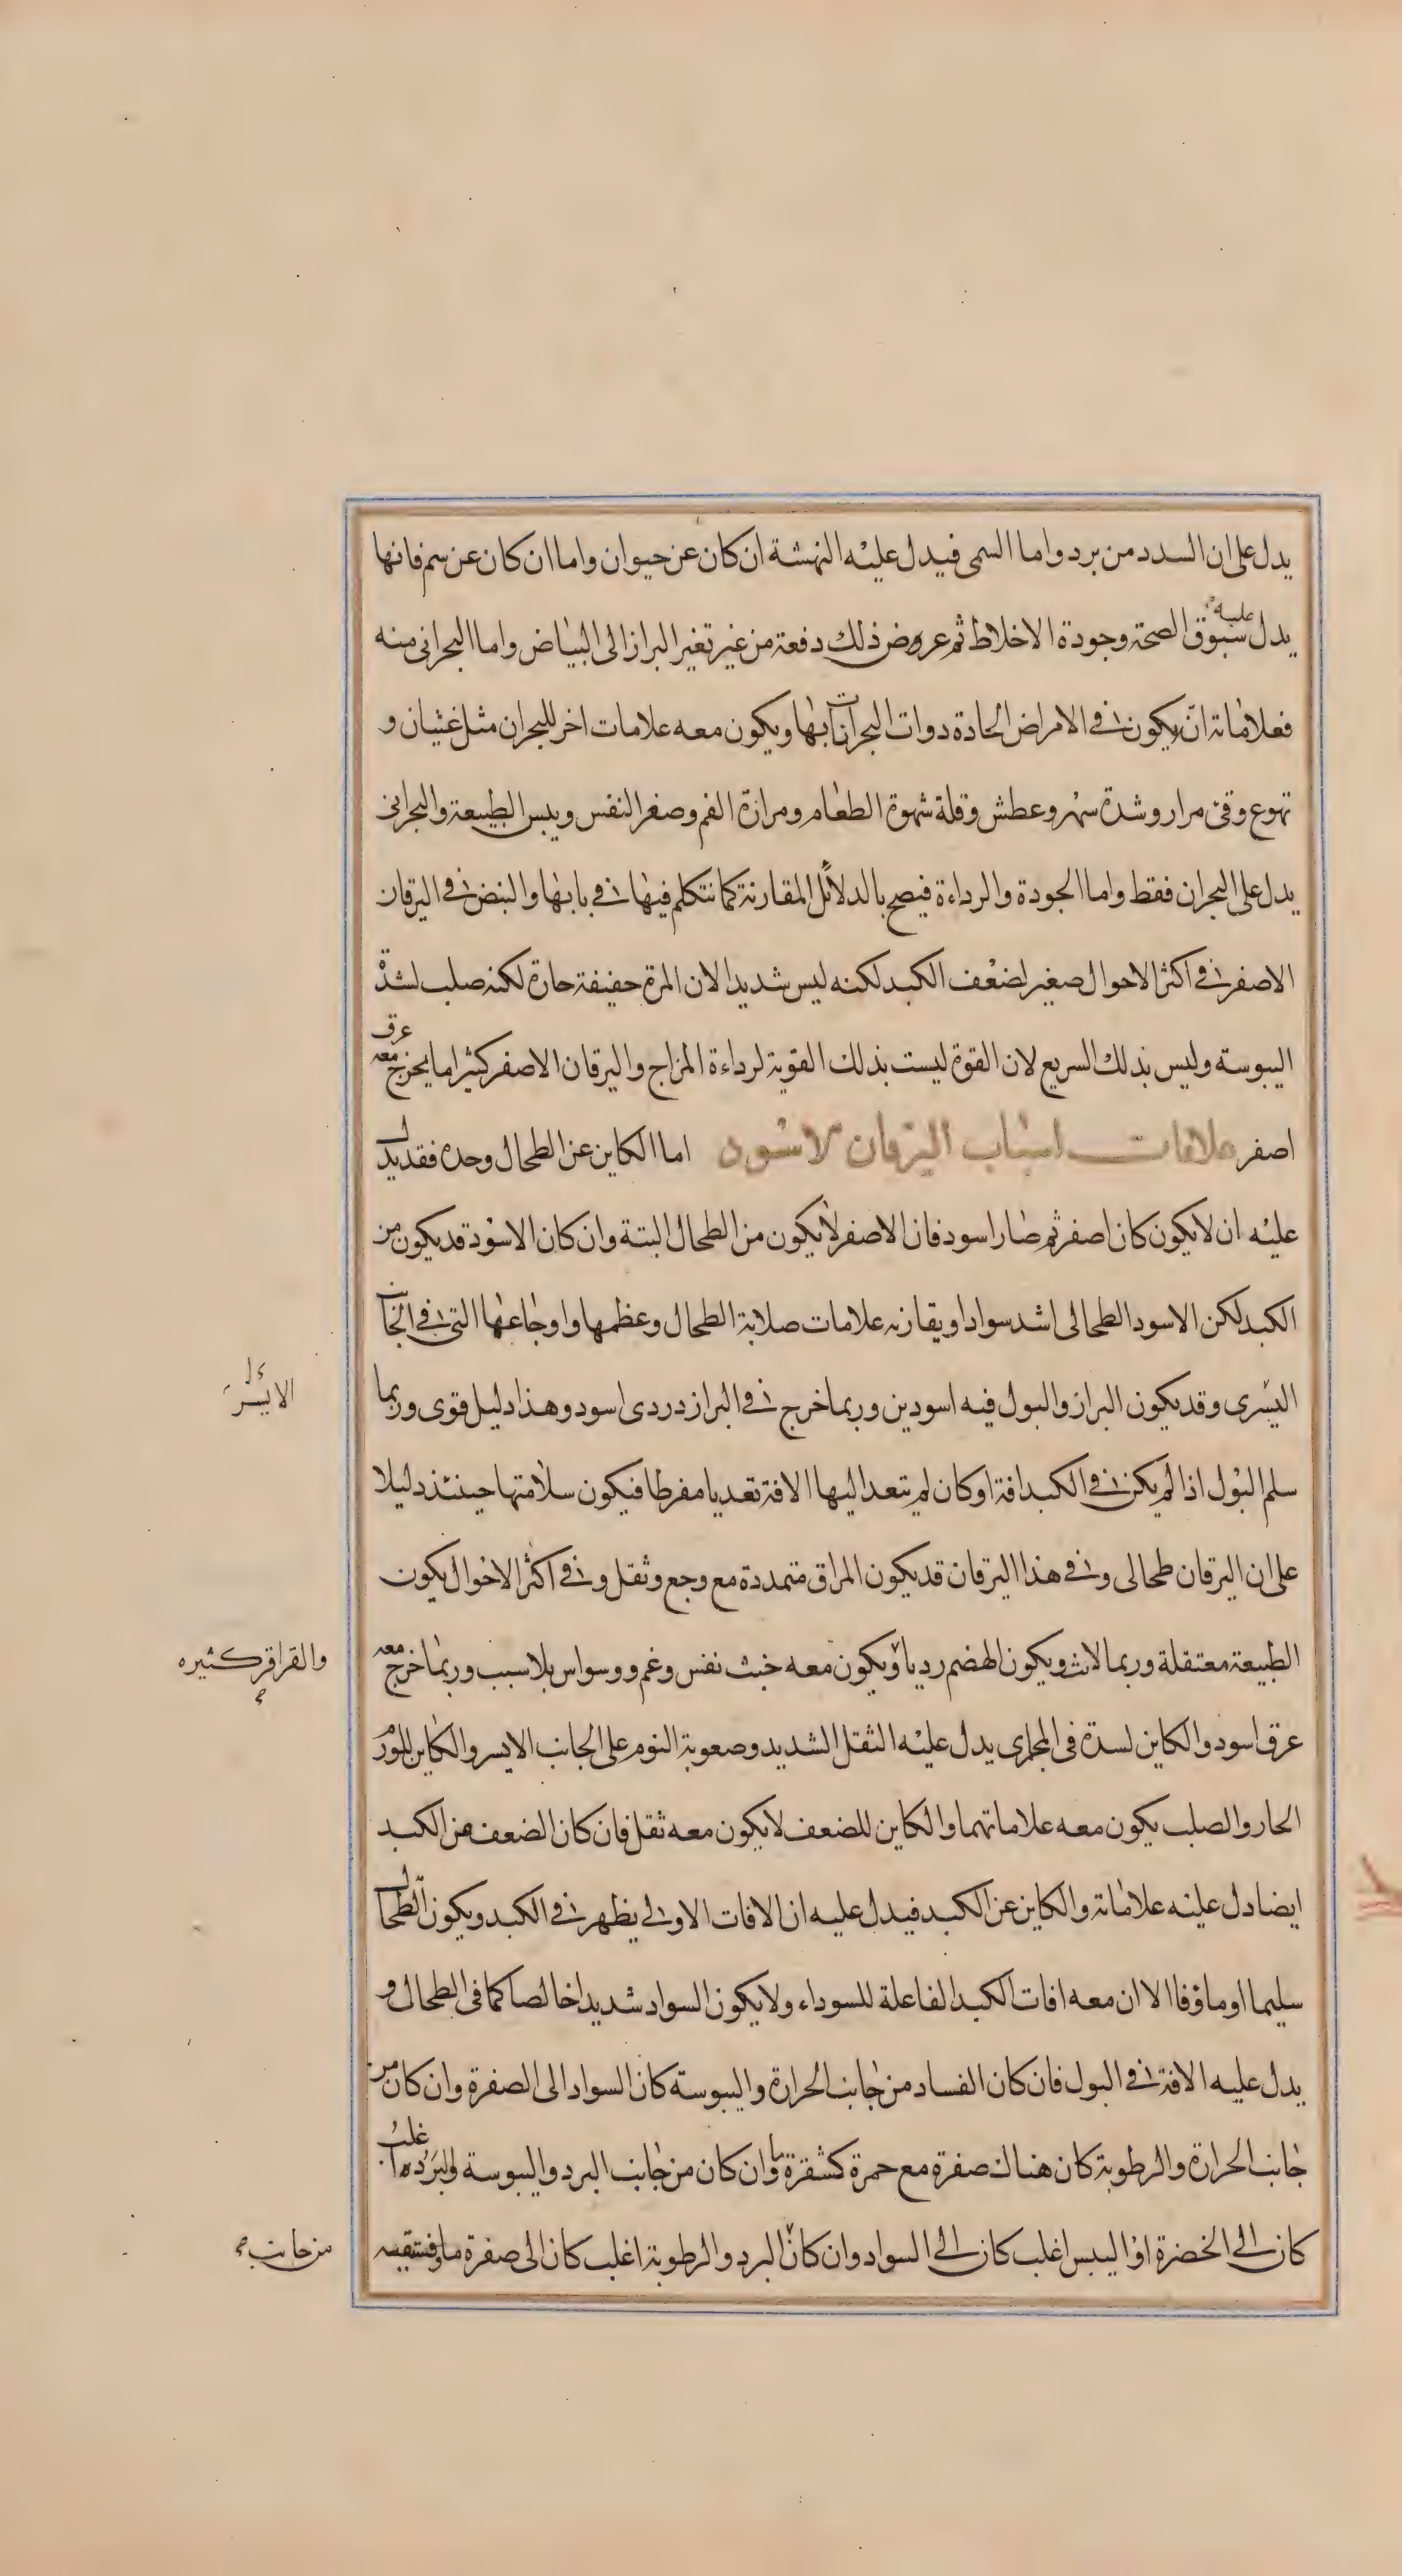 يدل على ان السدد من برد واما السمى فيدل عليه النهشة ان كان عن حيوان واما ان كان عن سم فانها
يدل عليه سبوق الصحة وجودة الاخلاط ثم عروض ذلك دفعة من غير تغير البراز الى البياض واما البحرانى منه
فعلاماته ان يكون فى الامراض الحادة دوات البحرانات بها ويكون معه علامات اخر للبحران مثل غثيان و
تهوع وقئ مرار وشدة سهر وعطش وقلة شهوة الطعام ومرارة الفم وصغر النفس ويبس الطبيعة والبحرانى
يدل على البحران فقط واما الجودة والرداءة فيصح بالدلائل المقارنة كما نتكلم فيها فى بابها والنبض فى اليرقان
الاصفر فى اكثر الاحوال صغير لضعف الكبد لكنه ليس شديدا لان المرة خفيفة حارة لكنه صلب لشدة
اليبوسة وليس بذلك السريع لان القوة ليست بذلك القوية لرداءة المزاج واليرقان الاصفر كثيرا ما يخرج معه عرق
اصفر علامات اسباب اليرقان الاسود اما الكاين عن الطحال وحده فقد يدل
عليه ان لا يكون كان اصفر ثم صار اسود فان الاصفر لا يكون من الطحال البتة وان كان الاسود قد يكون من
الكبد لكن الاسود الطحالى اشد سوادا ويقارنه علامات صلابة الطحال وعظمها واوجاعها التى فى الجانب
اليسرى وقد يكون البراز والبول فيه اسودين وربما خرج فى البراز دردى اسود وهذا دليل قوى وربما
الايسر
سلم البول اذا لم يكن فى الكبد افة او كان لم يتعد اليها الافة تعديا مفرطا فيكون سلامتها حينئذ دليلا
على ان اليرقان طحالى وفى هذا اليرقان قد يكون المراق متمددة مع وجع وثقل وفى اكثر الاحوال يكون
الطبيعة معتقلة وربما لانت ويكون الهضم رديا ويكون معه خبث نفس وغم ووسواس بلا سبب وربما خرج معه
والقراقر كثيره
عرق اسود والكاين لسدة فى المجارى يدل عليه الثقل الشديد وصعوبة النوم على الجانب الايسر والكاين للورم
الحار والصلب يكون معه علاماتهما والكاين للضعف لا يكون معه ثقل فان كان الضعف عن الكبد
ايضا دل عليه علاماته والكاين عن الكبد فيدل عليه ان الافات الاولى يظهر فى الكبد ويكون الطحال
سليما او ماؤفا الا ان معه افات الكبد الفاعلة للسوداء ولا يكون السواد شديدا خالصا كما فى الطحال و
يدل عليه الافة فى البول فان كان الفساد من جانب الحرارة واليبوسة كان السواد الى الصفرة وان كان من
جانب الحرارة والرطوبة كان هناك صفرة مع حمرة كشقرة ما وان كان من جانب البرد واليبوسة والبرد اغلب
كان الى الخضرة او اليبس اغلب كان الى السواد وان كان البرد والرطوبة اغلب كان الى صفرة ما وفستقيه
من جانب